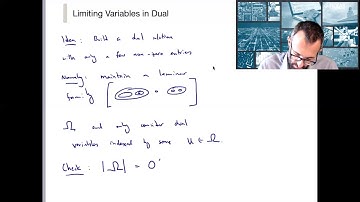 Limiting Variables in Dual
Idea: Build a dual solution
with only a few non-zero entries
Namely: maintain a laminar
family
Ω and only consider dual
variables indexed by some U ∈ Ω
Check: |Ω| = O